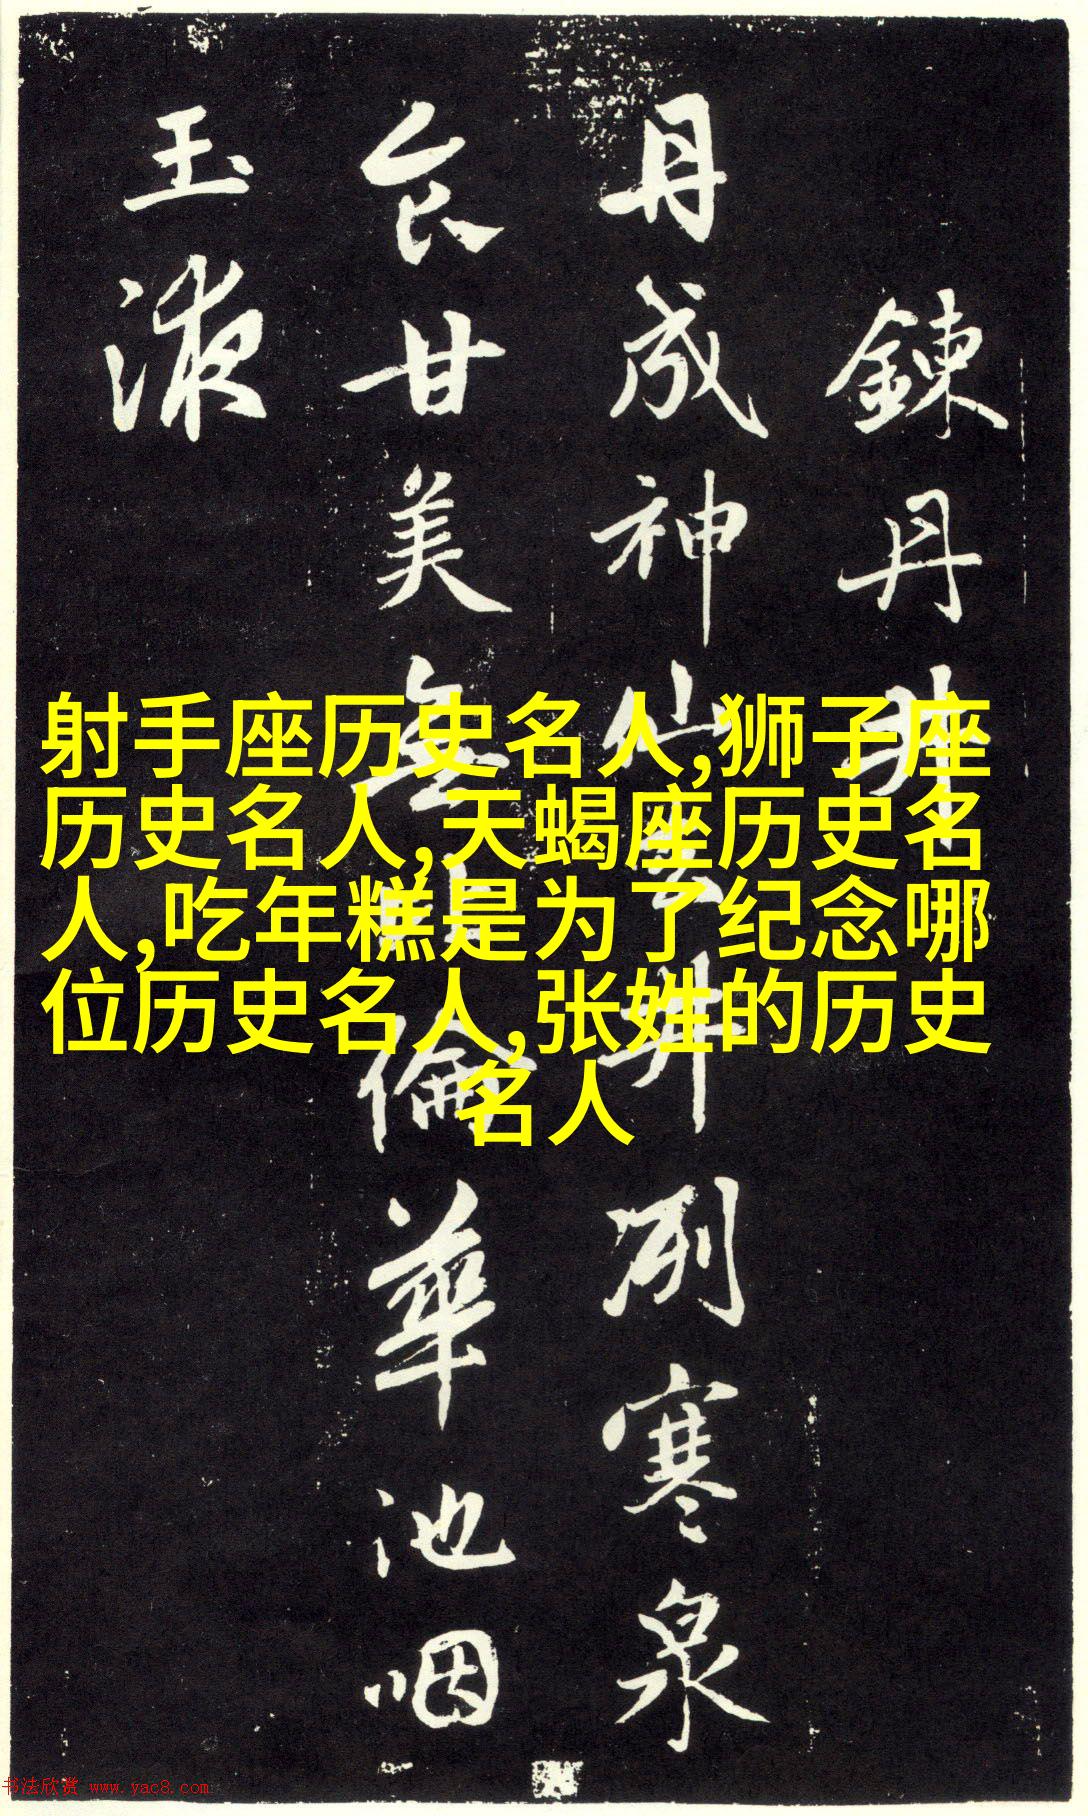 鍊丹井
丹成神仙去井冽寒泉
食甘美無比倫華池咽
玉液
射手座历史名人,狮子座
历史名人,天蝎座历史名
人,吃年糕是为了纪念哪
位历史名人,张姓的历史
名人
书法欣赏 www.yac8.com